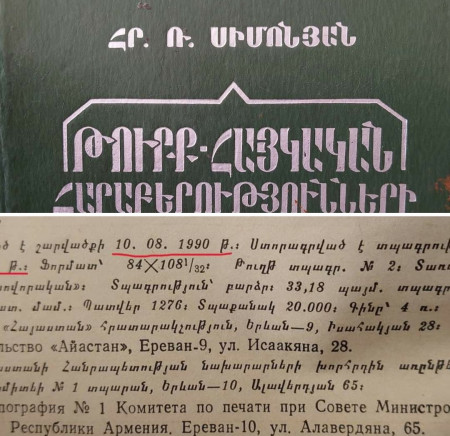 ՀՐ. Ռ. ՍԻՄՈՆՅԱՆ
ԹՈՒՐՔ-ՀԱՅԿԱԿԱՆ
ՀԱՐԱԲԵՐՈՒԹՅՈՒՆՆԵՐԻ
ած է շարվածքի 10. 08. 1990 թ.։ Ստորագրված է տպագրու
թ.։ Ֆորմատ՝ 84×108¹/₃₂։ Թուղթ տպագր. № 2։ Տառա
սովորական»։ Տպագրություն՝ բարձր։ 33,18 պայմ. տպագր
ատ. մամ.։ Պատվեր 1276։ Տպաքանակ 20.000։ Գինը՝ 4 ռ.։
«Հայաստան» հրատարակչություն, Երևան—9, Իսահակյան 28։
льство «Айастан», Ереван-9, ул. Исаакяна, 28.
աստանի Հանրապետության նախարարների խորհրդին առընթե
միտեի № 1 տպարան, Երևան—10, Ալավերդյան 65։
пография № 1 Комитета по печати при Совете Министро
Республики Армения. Ереван-10, ул. Алавердяна, 65.